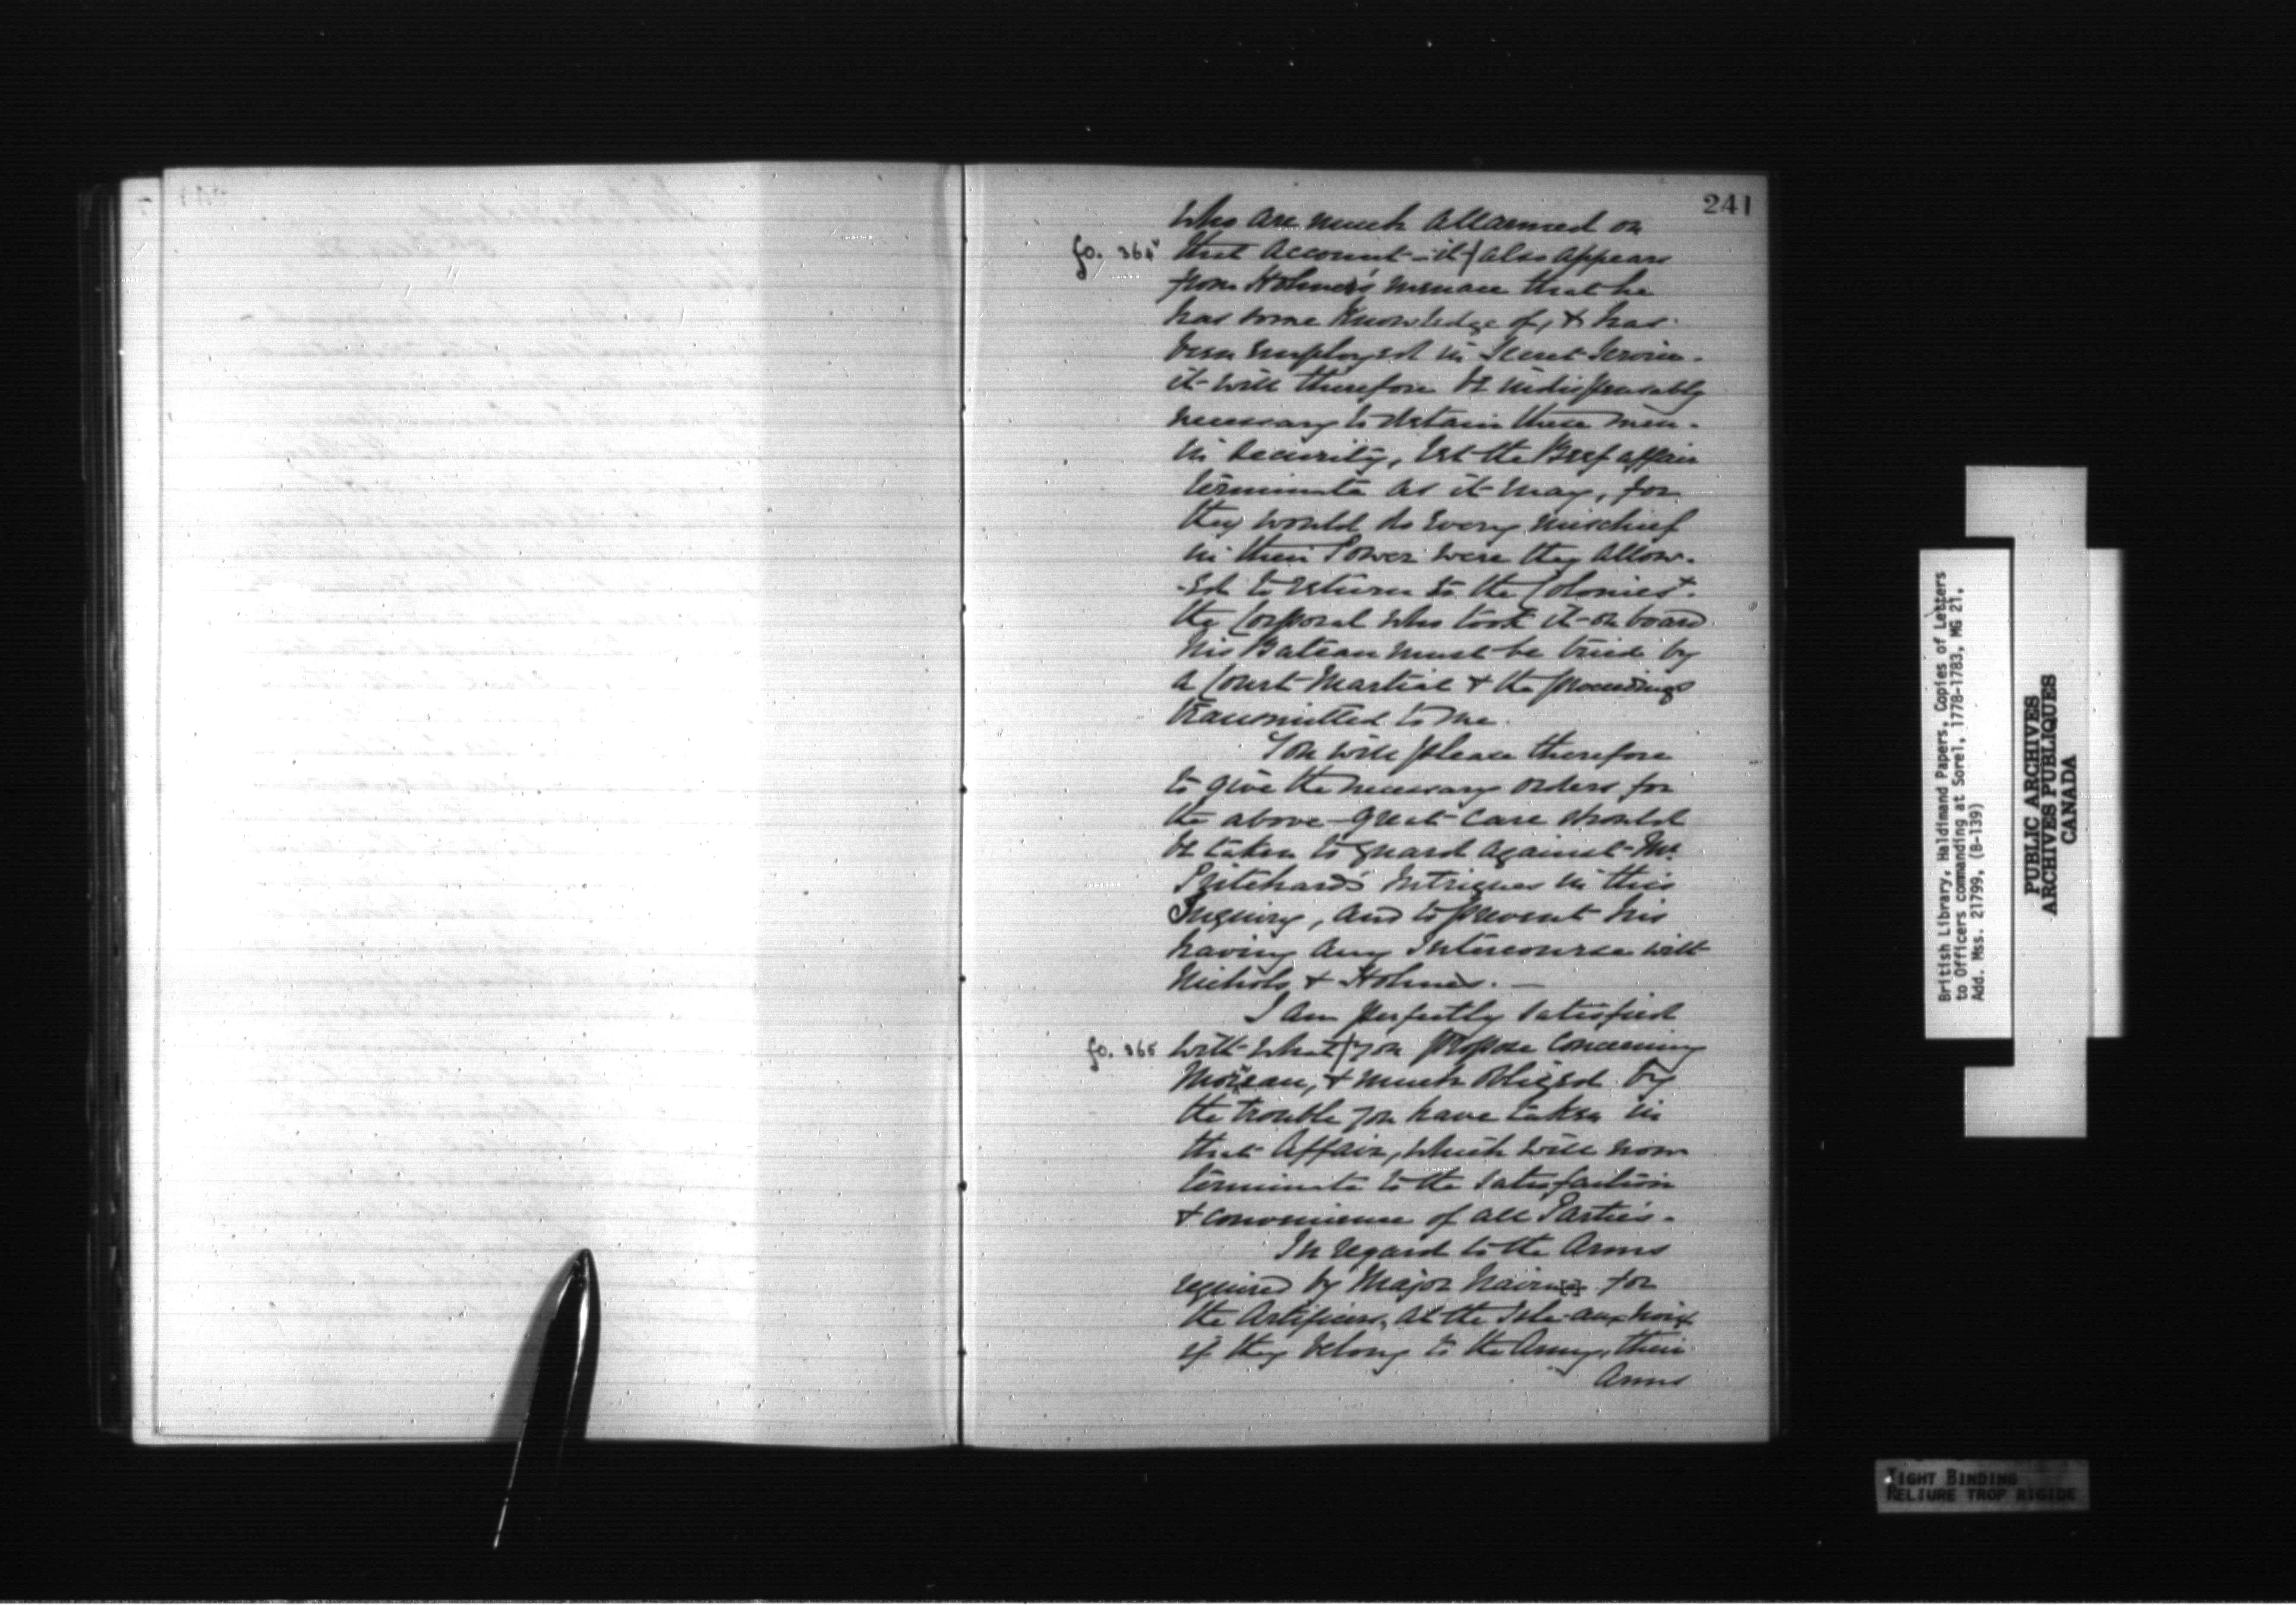 241
who are much allarmed on
fo. 364v that account - it | also appears
from Holmes's menace that he
has some knowledge of, & has
been employed in Secret Service.
it will therefore be indispensably
necessary to detain these men
in Security, let the Beef affair
terminate as it may, for
they would do every mischief
in their Power were they allow-
-ed to return to the Colonies.
the Corporal who took it on board
his Bateau must be tried by
a Court Martial & the proceedings
transmitted to me.
You will please therefore
to give the necessary orders for
the above - great care should
be taken to guard against Mr.
Pritchard's Intrigues in this
Inquiry, and to prevent his
having any Intercourse with
Nichols & Holmes. —
I am perfectly satisfied
fo. 365 with what | you propose concerning
Moreau, & much obliged by
the trouble you have taken in
that Affair, which will now
terminate to the satisfaction
& convenience of all Parties.
In regard to the Arms
required by Major Nairn for
the Artificers, at the Isle-aux-noix
if they belong to the Army, their
Arms
British Library, Haldimand Papers, Copies of Letters
to Officers commanding at Sorel, 1778-1783, MG 21,
Add. Mss. 21799, (B-139)
PUBLIC ARCHIVES
ARCHIVES PUBLIQUES
CANADA
TIGHT BINDING
RELIURE TROP RIGIDE